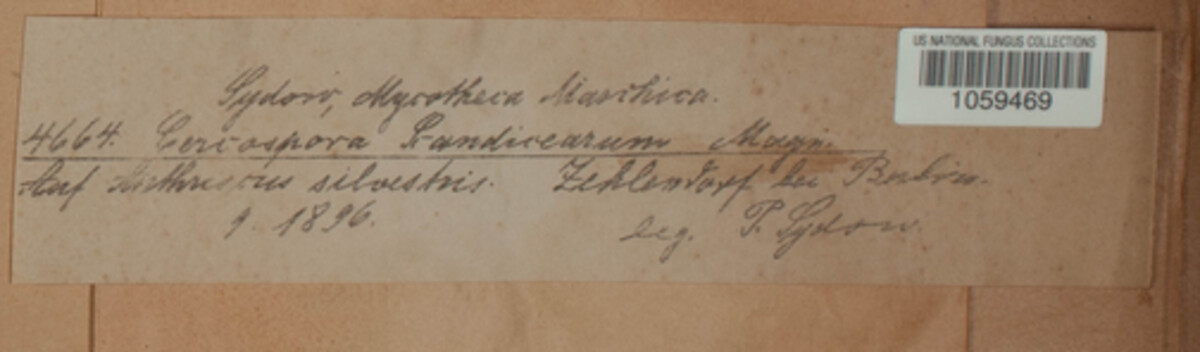 Sydow, Mycotheca Marchica.
US NATIONAL FUNGUS COLLECTIONS
1059469
4664. Cercospora Scandicearum Magn.
Auf Anthriscus silvestris. Zehlendorf bei Berlin.
9. 1896. leg. P. Sydow.